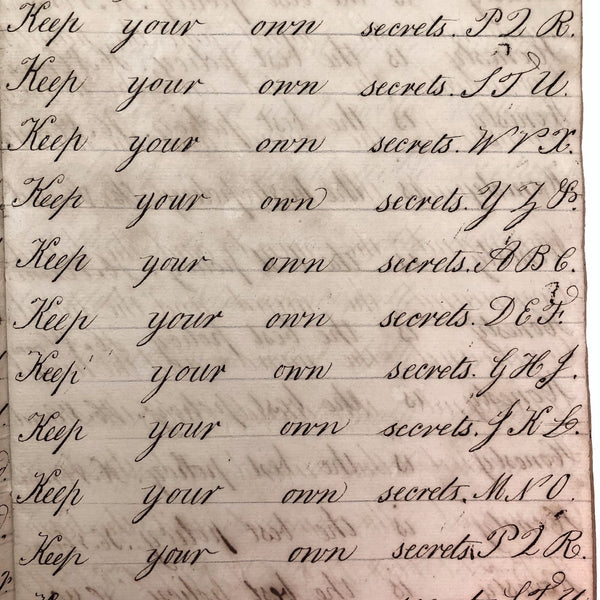 Keep your own secrets. P Q R.
Keep your own secrets. S T U.
Keep your own secrets. W V X.
Keep your own secrets. Y Z &.
Keep your own secrets. A B C.
Keep your own secrets. D E F.
Keep your own secrets. G H J.
Keep your own secrets. J K L.
Keep your own secrets. M N O.
Keep your own secrets P Q R.